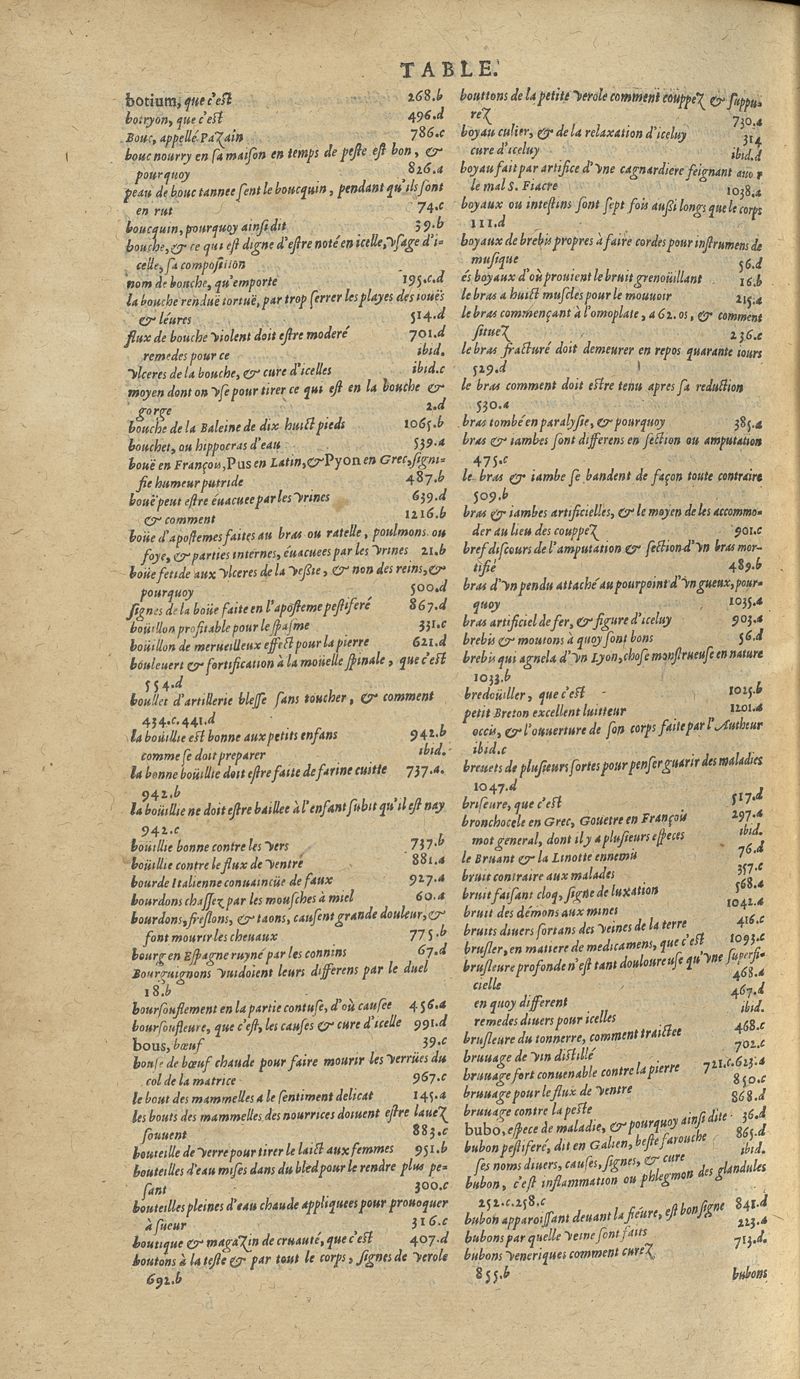 TABLE.
botium, que c'est 268.b
botryon, que c'est 496.d
Bouc, appellé Pazain 786.c
bouc nourry en sa maison en temps de peste est bon, &
pourquoy 826.a
peau de bouc tannee sent le boucquin, pendant qu'ils sont
en rut 74.c
boucquin, pourquoy ainsi dit 39.b
bouche, & ce qui est digne d'estre noté en icelle, vsage d'i-
celle, sa composition
nom de bouche, qu'emporte 195.c.d
la bouche renduë tortuë, par trop serrer les playes des iouës
& léures 514.d
flux de bouche violent doit estre moderé 701.d
remedes pour ce ibid.
vlceres de la bouche, & cure d'icelles ibid.c
moyen dont on vse pour tirer ce qui est en la bouche &
gorge 2.d
bouche de la Baleine de dix huict pieds 1065.b
bouchet, ou hippocras d'eau 539.a
bouë en François, Pus en Latin, & Pyon en Grec, signi-
fie humeur putride 487.b
bouë peut estre éuacuee par les vrines 639.d
& comment 1216.b
boüe d'apostemes faites au bras ou ratelle, poulmons ou
foye, & parties internes, éuacuees par les vrines 21.b
boüe fetide aux vlceres de la vessie, & non des reins, &
pourquoy 500.d
signes de la boüe faite en l'aposteme pestiferé 867.d
boüillon profitable pour le spasme 331.c
boüillon de merueilleux effect pour la pierre 621.d
bouleuert & fortification à la moüelle spinale, que c'est
554.d
boullet d'artillerie blesse sans toucher, & comment
434.c. 441.d
la boüillie est bonne aux petits enfans 942.b
comme se doit preparer ibid.
la bonne boüillie doit estre faite de farine cuitte 737.a.
942.b
la boüillie ne doit estre baillee à l'enfant subit qu'il est nay
942.c
boüillie bonne contre les vers 737.b
boüillie contre le flux de ventre 881.a
bourde Italienne conuaincüe de faux 927.a
bourdons chassez par les mousches à miel 60.a
bourdons, freslons, & taons, causent grande douleur, &
font mourir les cheuaux 775.b
bourg en Espagne ruyné par les connins 67.d
Bourguignons vuidoient leurs differens par le duel
18.b
boursouflement en la partie contuse, d'où causee 456.a
boursoufleure, que c'est, les causes & cure d'icelle 991.d
bous, bœuf 39.c
bouse de bœuf chaude pour faire mourir les verrües du
col de la matrice 967.c
le bout des mammelles a le sentiment delicat 145.a
les bouts des mammelles des nourrices doiuent estre lauez
souuent 883.c
bouteille de verre pour tirer le laict aux femmes 951.b
bouteilles d'eau mises dans du bled pour le rendre plus pe-
sant 300.c
bouteilles pleines d'eau chaude appliquees pour prouoquer
à sueur 316.c
boutique & magazin de cruauté, que c'est 407.d
boutons à la teste & par tout le corps, signes de verole
692.b
bouttons de la petite verole comment couppez & suppu-
rez 730.a
boyau culier, & de la relaxation d'iceluy 314
cure d'iceluy ibid.d
boyau fait par artifice d'vne cagnardiere feignant auoir
le mal S. Fiacre 1038.a
boyaux ou intestins sont sept fois aussi longs que le corps
111.d
boyaux de brebis propres à faire cordes pour instrumens de
musique 56.d
és boyaux d'où prouient le bruit grenoüillant 16.b
le bras a huict muscles pour le mouuoir 215.a
le bras commençant à l'omoplate, a 62. os, & comment
situez 236.c
le bras fracturé doit demeurer en repos quarante iours
529.d
le bras comment doit estre tenu apres sa reduction
530.a
bras tombé en paralysie, & pourquoy 385.a
bras & iambes sont differens en section ou amputation
475.c
le bras & iambe se bandent de façon toute contraire
509.b
bras & iambes artificielles, & le moyen de les accommo-
der au lieu des couppez 901.c
bref discours de l'amputation & section d'vn bras mor-
tifié 489.b
bras d'vn pendu attaché au pourpoint d'vn gueux, pour-
quoy 1035.a
bras artificiel de fer, & figure d'iceluy 903.a
brebis & moutons à quoy sont bons 56.d
brebis qui agnela d'vn Lyon, chose monstrueuse en nature
1033.b
bredoüiller, que c'est 1025.b
petit Breton excellent luitteur 1201.a
occis, & l'ouuerture de son corps faite par l'Autheur
ibid.c
breuets de plusieurs sortes pour penser guarir des maladies
1047.d
briseure, que c'est 517.d
bronchocele en Grec, Gouetre en François 297.a
mot general, dont il y a plusieurs especes ibid.
le Bruant & la Linotte ennemis 76.d
bruit contraire aux malades 357.c
bruit faisant cloq, signe de luxation 568.a
bruit des démons aux mines 1042.a
bruits diuers sortans des veines de la terre 416.c
brusler, en matiere de medicamens, que c'est 1093.c
brusleure profonde n'est tant douloureuse qu'vne superfi-
cielle 468.a
en quoy different 467.d
remedes diuers pour icelles ibid.
brusleure du tonnerre, comment traictee 468.c
bruuage de vin distillé 702.c
bruuage fort conuenable contre la pierre 721.c.623.a
bruuage pour le flux de ventre 850.c
bruuage contre la peste 868.d
bubo, espece de maladie, & pourquoy ainsi dite 36.d
bubon pestiferé, dit en Galien, beste farouche 865.d
ses noms diuers, causes, signes, & cure ibid.
bubon, c'est inflammation ou phlegmon des glandules
252.c.258.c
bubon apparoissant deuant la fieure, est bon signe 841.d
bubons par quelle veine sont faits 223.a
bubons veneriques comment curez 713.d.
855.b
bubons